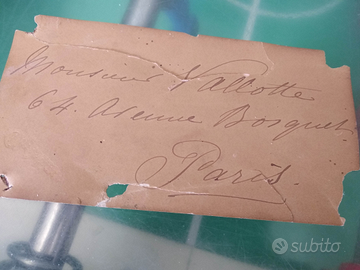 Monsieur Vallotte
64. Avenue Bosquet.
Paris.
subito